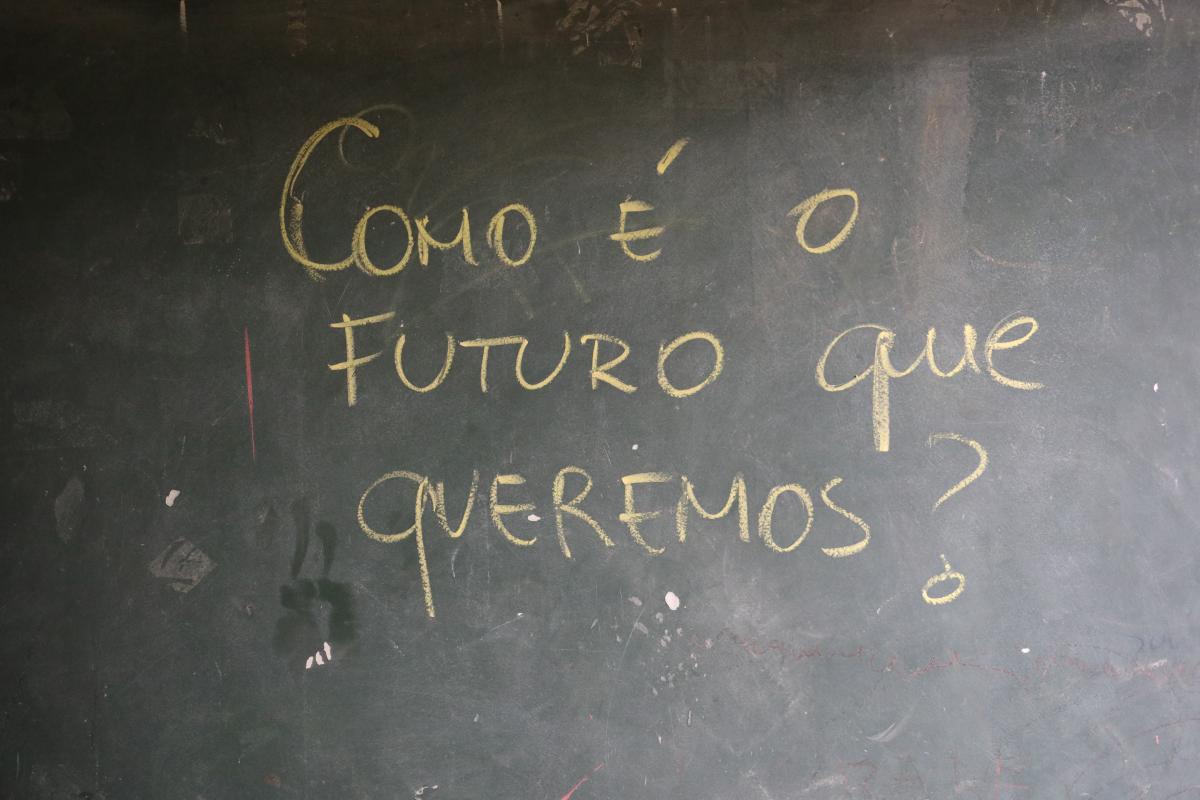 Como é o
FUTURO que
QUEREMOS?